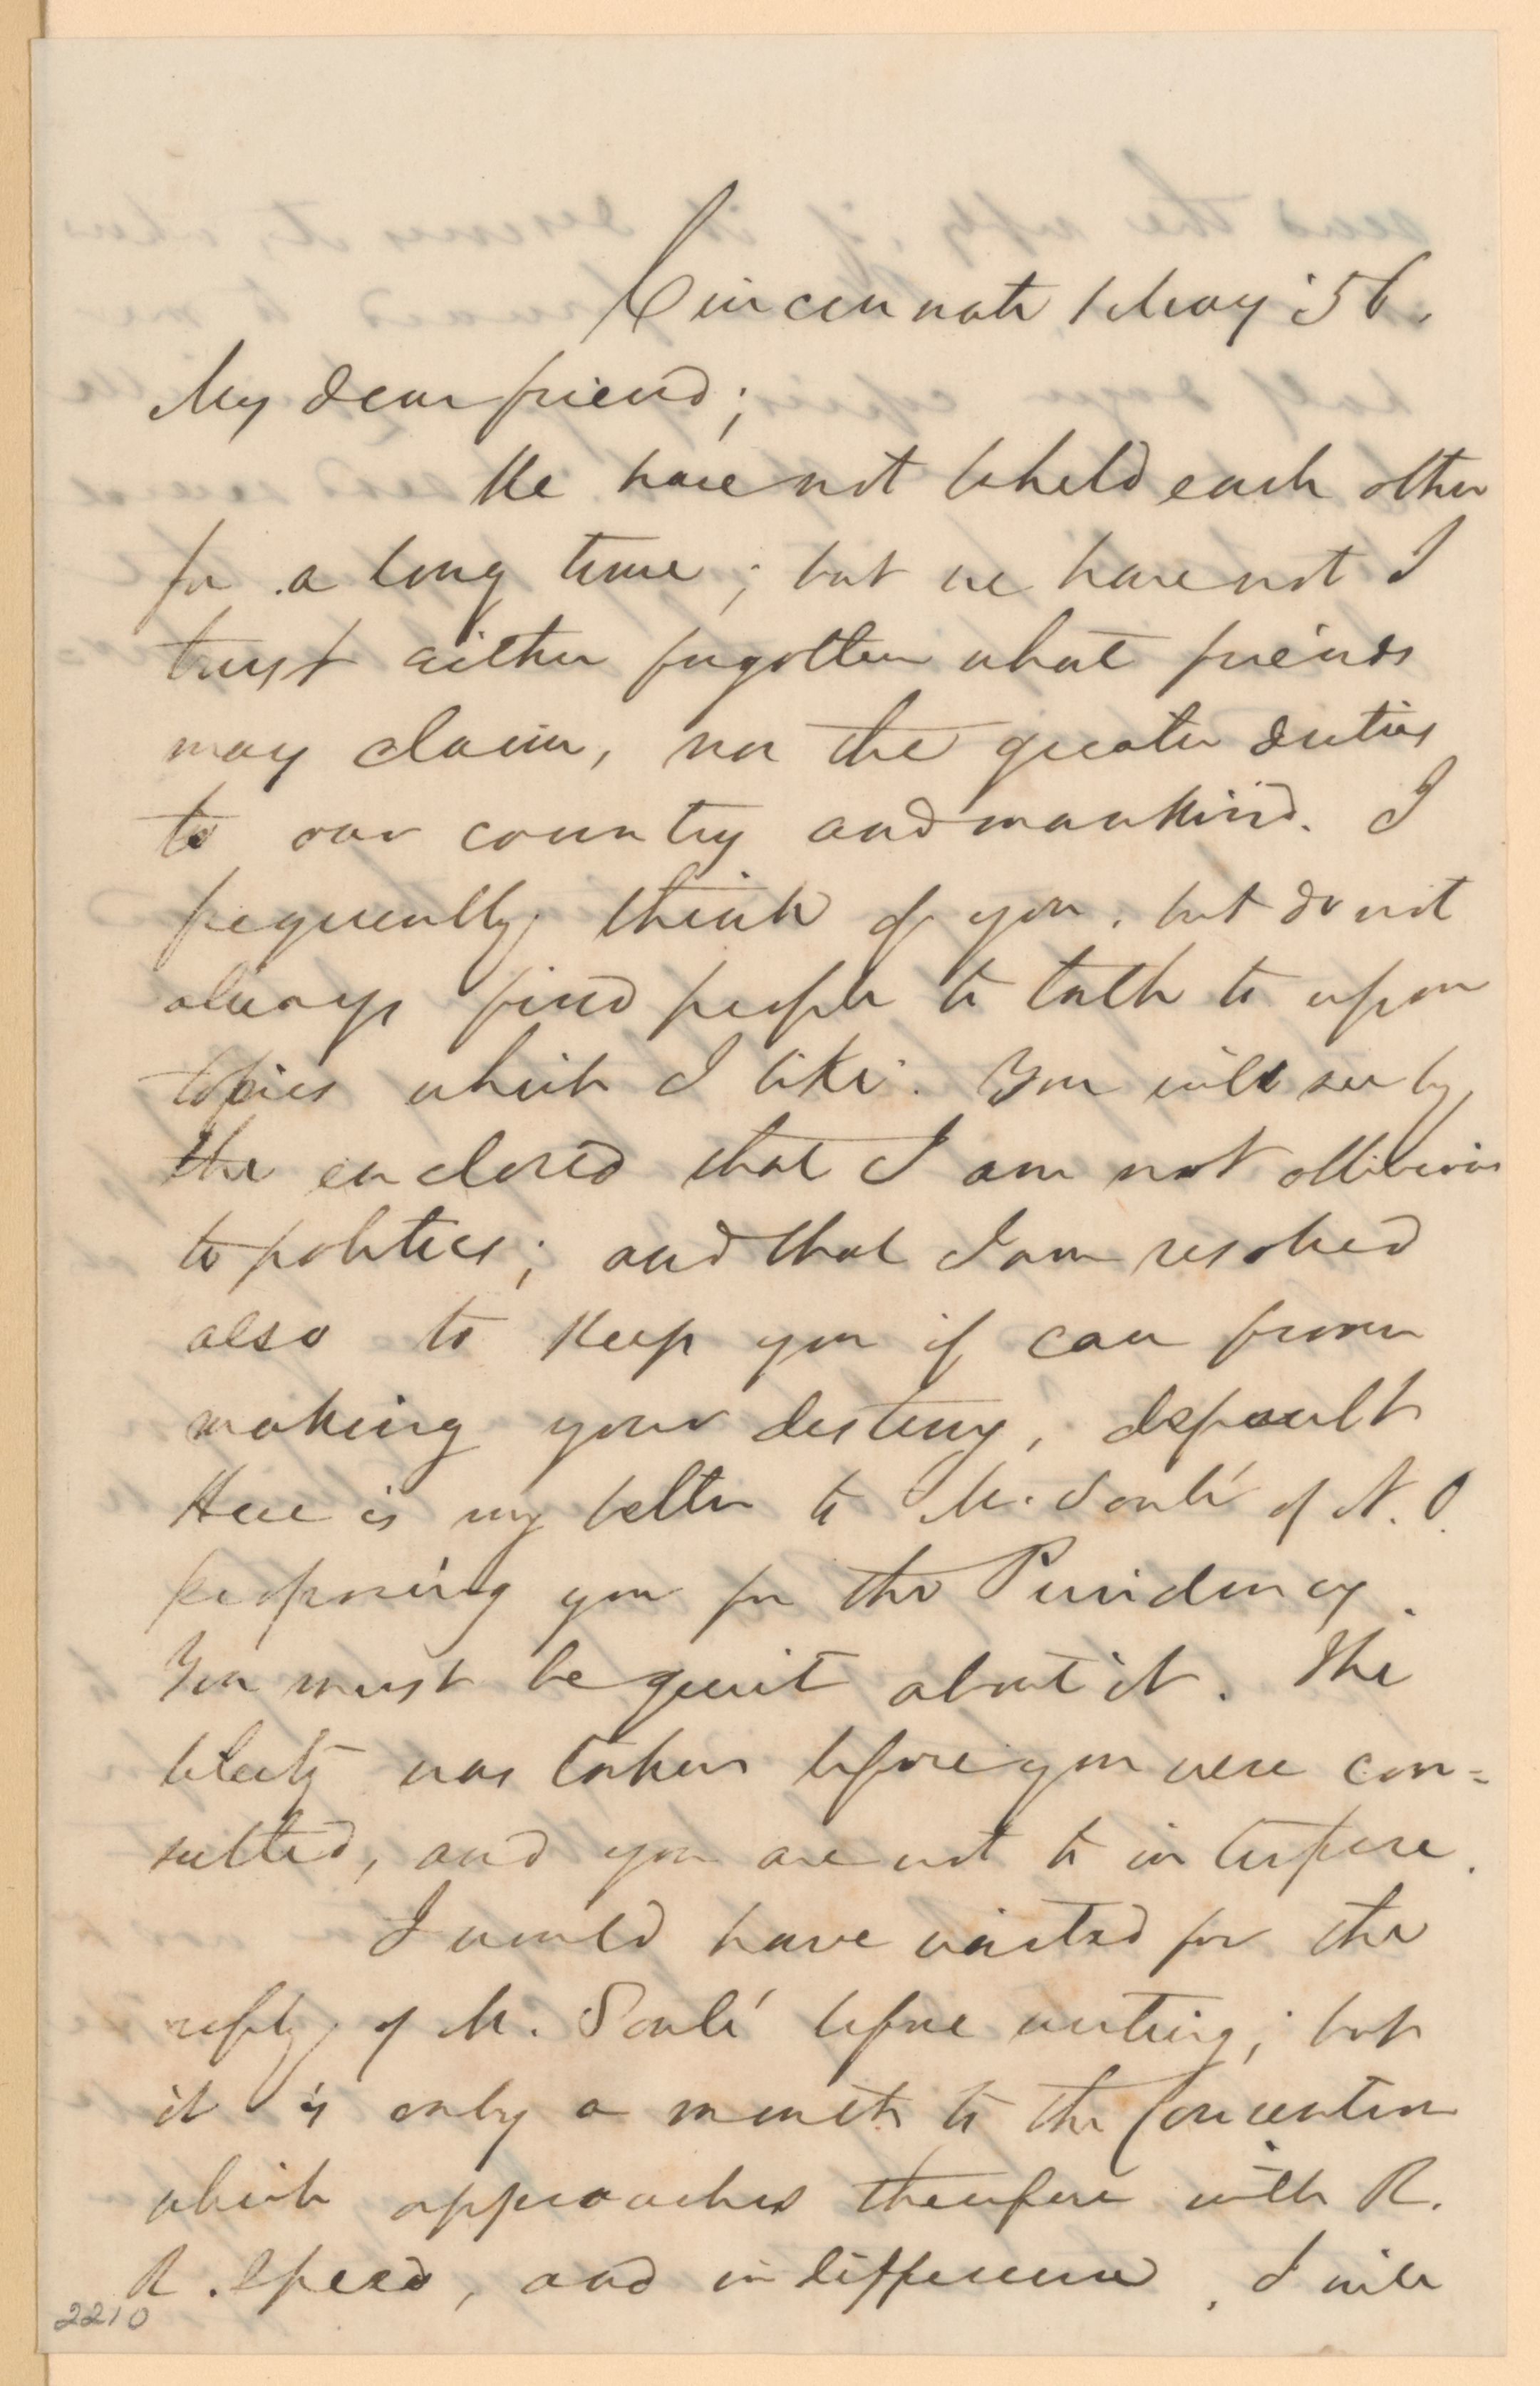 Cincinnati 1 May '56.
My dear friend;
We have not beheld each other
for a long time; but we have not I
trust either forgotten what friends
may claim, nor the greater duties
to our country and mankind. I
frequently think of you, but do not
always find people to talk to upon
topics which I like. You will see by
the enclosed that I am not oblivious
to politics; and that I am resolved
also to keep you if can from
making your destiny, default
Here is my letter to Mr. Soulé of N. O.
proposing you for the Presidency.
You must be quiet about it. The
liberty was taken before you were con=
sulted, and you are not to interfere.
I would have waited for the
reply of Mr. Soulé before writing; but
it is only a month to the Convention
which approaches therefore with R.
R. speed, and indifference. I will
2210